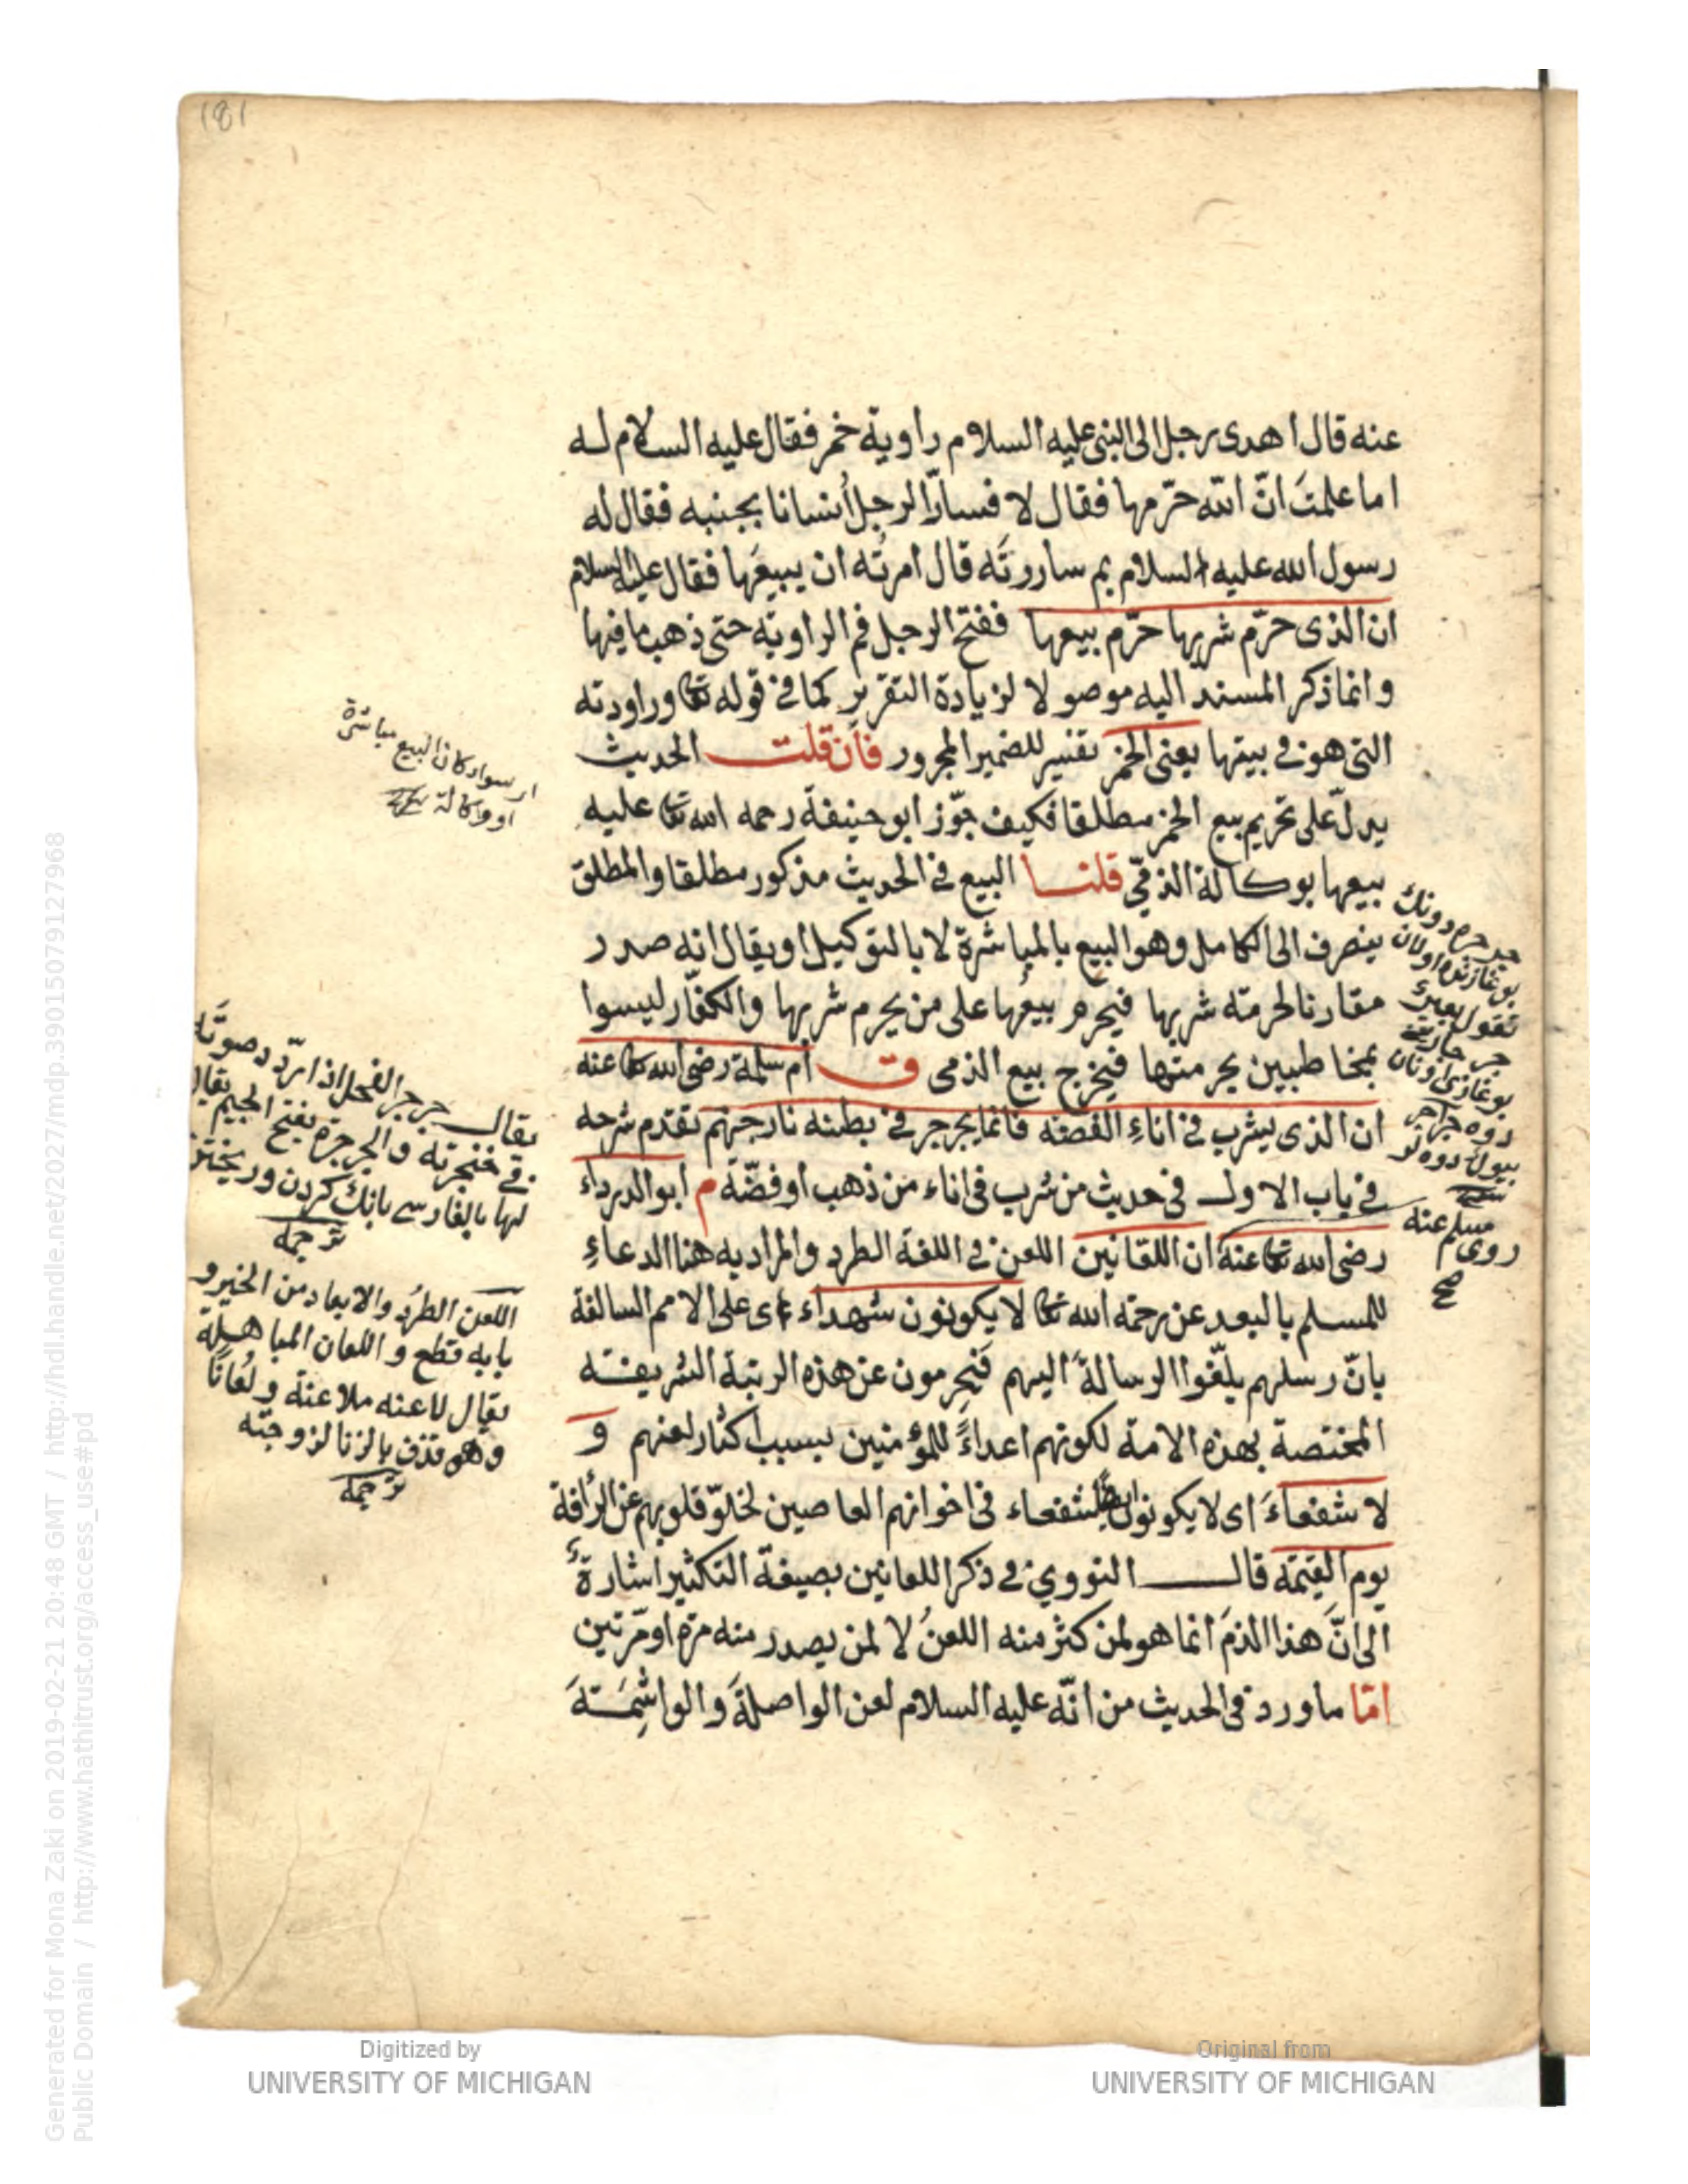 181
عنه قال اهدى رجل الى النبى عليه السلام راوية خمر فقال عليه السلام له
اما علمتَ انّ الله حرّمها فقال لا فسارّ الرجل أنسانا بجنبه فقال له
رسول الله عليه السلام بم ساررتَه قال امرتُه ان يبيعَها فقال عليه السلام
ان الذى حرّم شربها حرّم بيعها ففتح الرجل فم الراوية حتى ذهب ما فيها
وانما ذكر المسند اليه موصولا لزيادة التقرير كما فى قوله تعا وراودته
التى هو فى بيتها يعنى الخمر تفسير للضمير المجرور فأن قلت الحديث
يدلّ على تحريم بيع الخمر مطلقا فكيف جوّز ابو حنيفة رحمه الله تعا عليه
بيعها بوكالة الذمّي قلنا البيع فى الحديث مذكور مطلقا والمطلق
ينصرف الى الكامل وهو البيع بالمباشرة لا بالتوكيل او يقال انه صدر
مقارنا لحرمته شربها فيحرم بيعُها على من يحرم شربها والكفّار ليسوا
بمخاطبين بحرمتها فيخرج بيع الذمى ق ام سلمة رضى الله تعا عنه
ان الذى يشرب فى اناءِ الفضة فانما يجرجر فى بطنه نار جهنم تقدم شرحه
فى باب الاول فى حديث من شرب فى اناء من ذهب او فضّة م ابو الدرداء
رضى الله تعا عنه ان اللعانين اللعن فى اللغة الطرد والمراد به هنا الدعاءِ
للمسلم بالبعد عن رحمة الله تعا لا يكونون شهداء اى على الامم السالفة
بانّ رسلهم بلّغوا الرسالةَ اليهم فيُحرمون عن هذه الرتبة الشريفة
المختصة بهذه الامة لكونهم اعداءً للمؤمنين بسبب اكثار لعنهم و
لا شفعاءَ اى لا يكونون ايضا شفعاء فى اخوانهم العاصين لخلوّ قلوبهم عن الرأفة
يوم القيمة قال النووي فى ذكر اللعانين بصيغة التكثير اشارةٌ
الى انَّ هذا الذمَ انما هو لمن كثر منه اللعنُ لا لمن يصدر منه مرة او مّرتين
امّا ما ورد فى الحديث من انّه عليه السلام لعن الواصلةَ والواشِمَةَ
سواء كان البيع مباشرة
او وكالة
يقال جرجر الفحل اذا ردّد صوتَه
فى حنجرته والجرجرة بفتح الجيم يقال
لها بالفارسى بانك كردن و
ترجمه
اللعن الطرُد والابعاد من الخير و
بابه قطع و اللعان المباهلة
يقال لاعنه ملاعنة ولعانًا
وهو قذف بالزنا لزوجته
ترجمه
مسلم عنه
روى
صح
Generated for Mona Zaki on 2019-02-21 20:48 GMT / http://hdl.handle.net/2027/mdp.39015079127968
Public Domain / http://www.hathitrust.org/access_use#pd
Digitized by
UNIVERSITY OF MICHIGAN
Original from
UNIVERSITY OF MICHIGAN